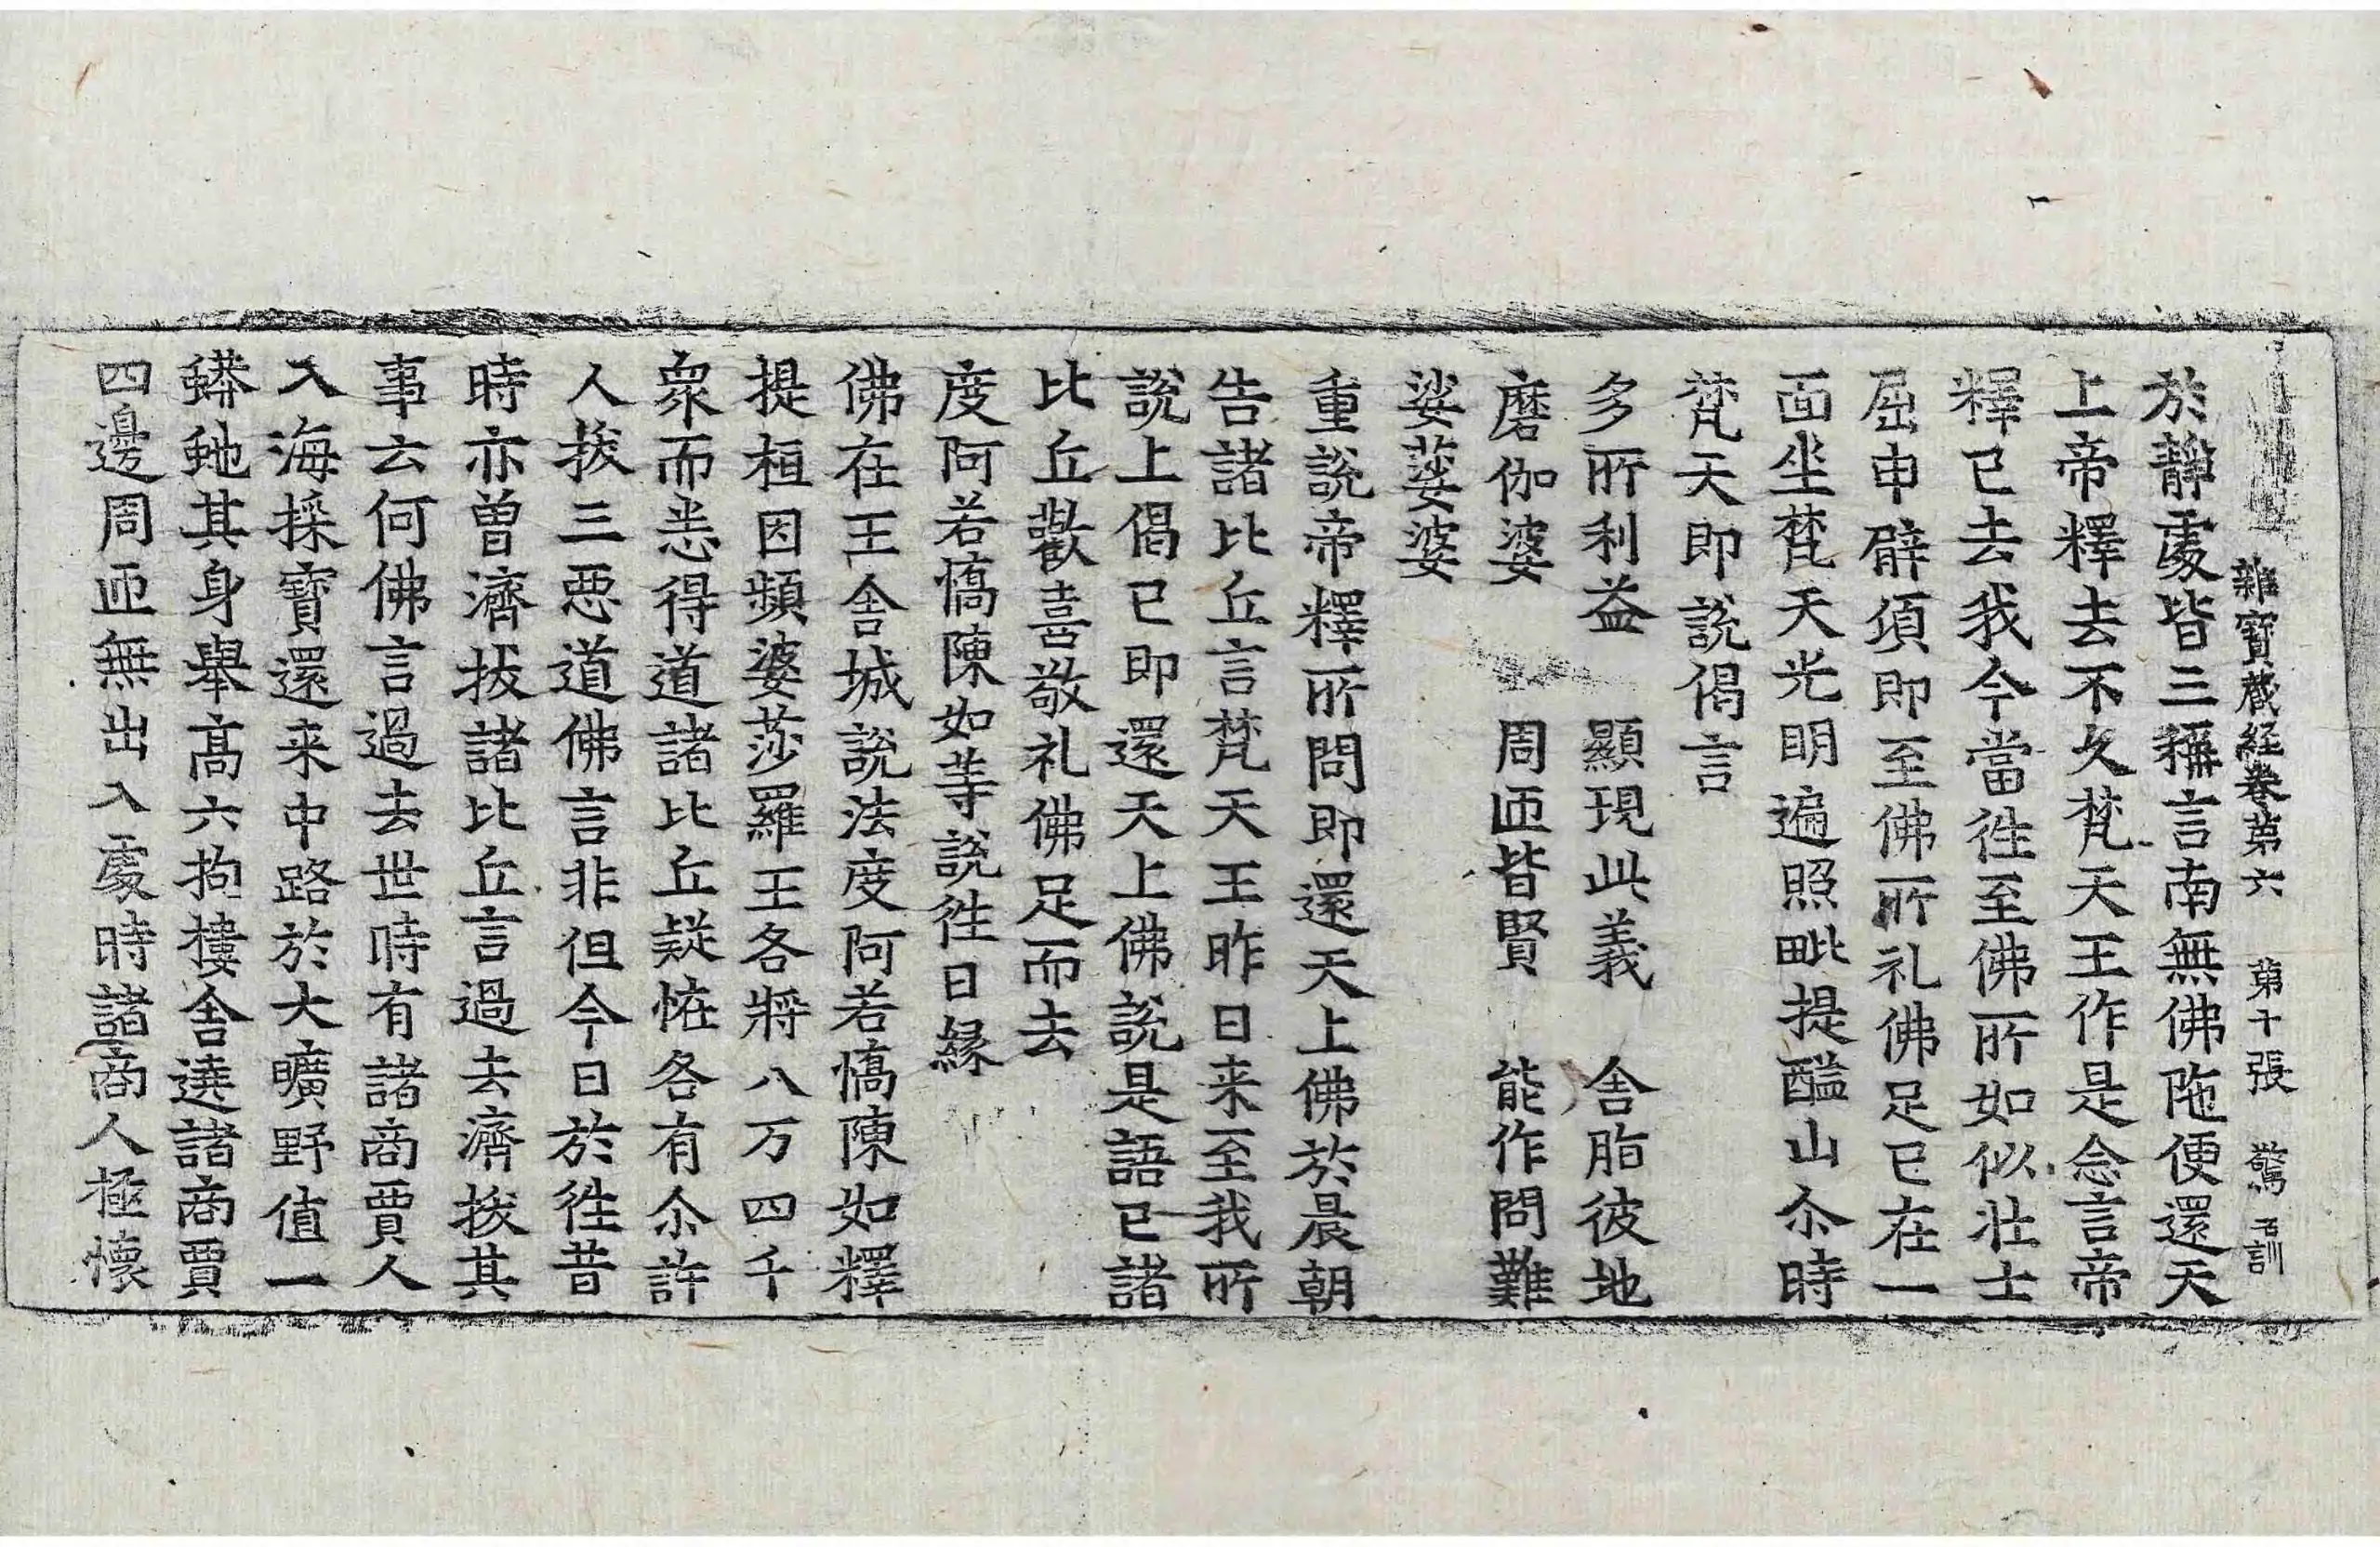 雜寳蔵経巻第六　第十張　驚
於靜處皆三稱言南無佛陁便還天
上帝釋去不久梵天王作是念言帝
釋已去我今當徃至佛所如似壮士
屈申臂湏即至佛所礼佛足已在一
面坐梵天光明遍照毗提醯山尒時
梵天即說偈言
多所利益　顯現此義　舎脂彼地
磨伽婆　周匝皆賢　能作問難
娑婆婆
重說帝釋所問即還天上佛於晨朝
告諸比丘言梵天王昨日来至我所
說上偈已即還天上佛說是語已諸
比丘歡喜敬礼佛足而去
度阿若憍陳如等說徃日緣
佛在王舎城說法度阿若憍陳如釋
提桓因頻婆莎羅王各將八万四千
衆而悉得道諸比丘疑恠各有尒許
人拔三惡道佛言非但今日於徃昔
時亦曽濟拔諸比丘言過去濟拔其
事云何佛言過去世時有諸商賈人
入海採寳還来中路於大曠野值一
蟒虵其身舉髙六拘摟舎遶諸商賈
四邊周匝無出入處時諸商人極懷